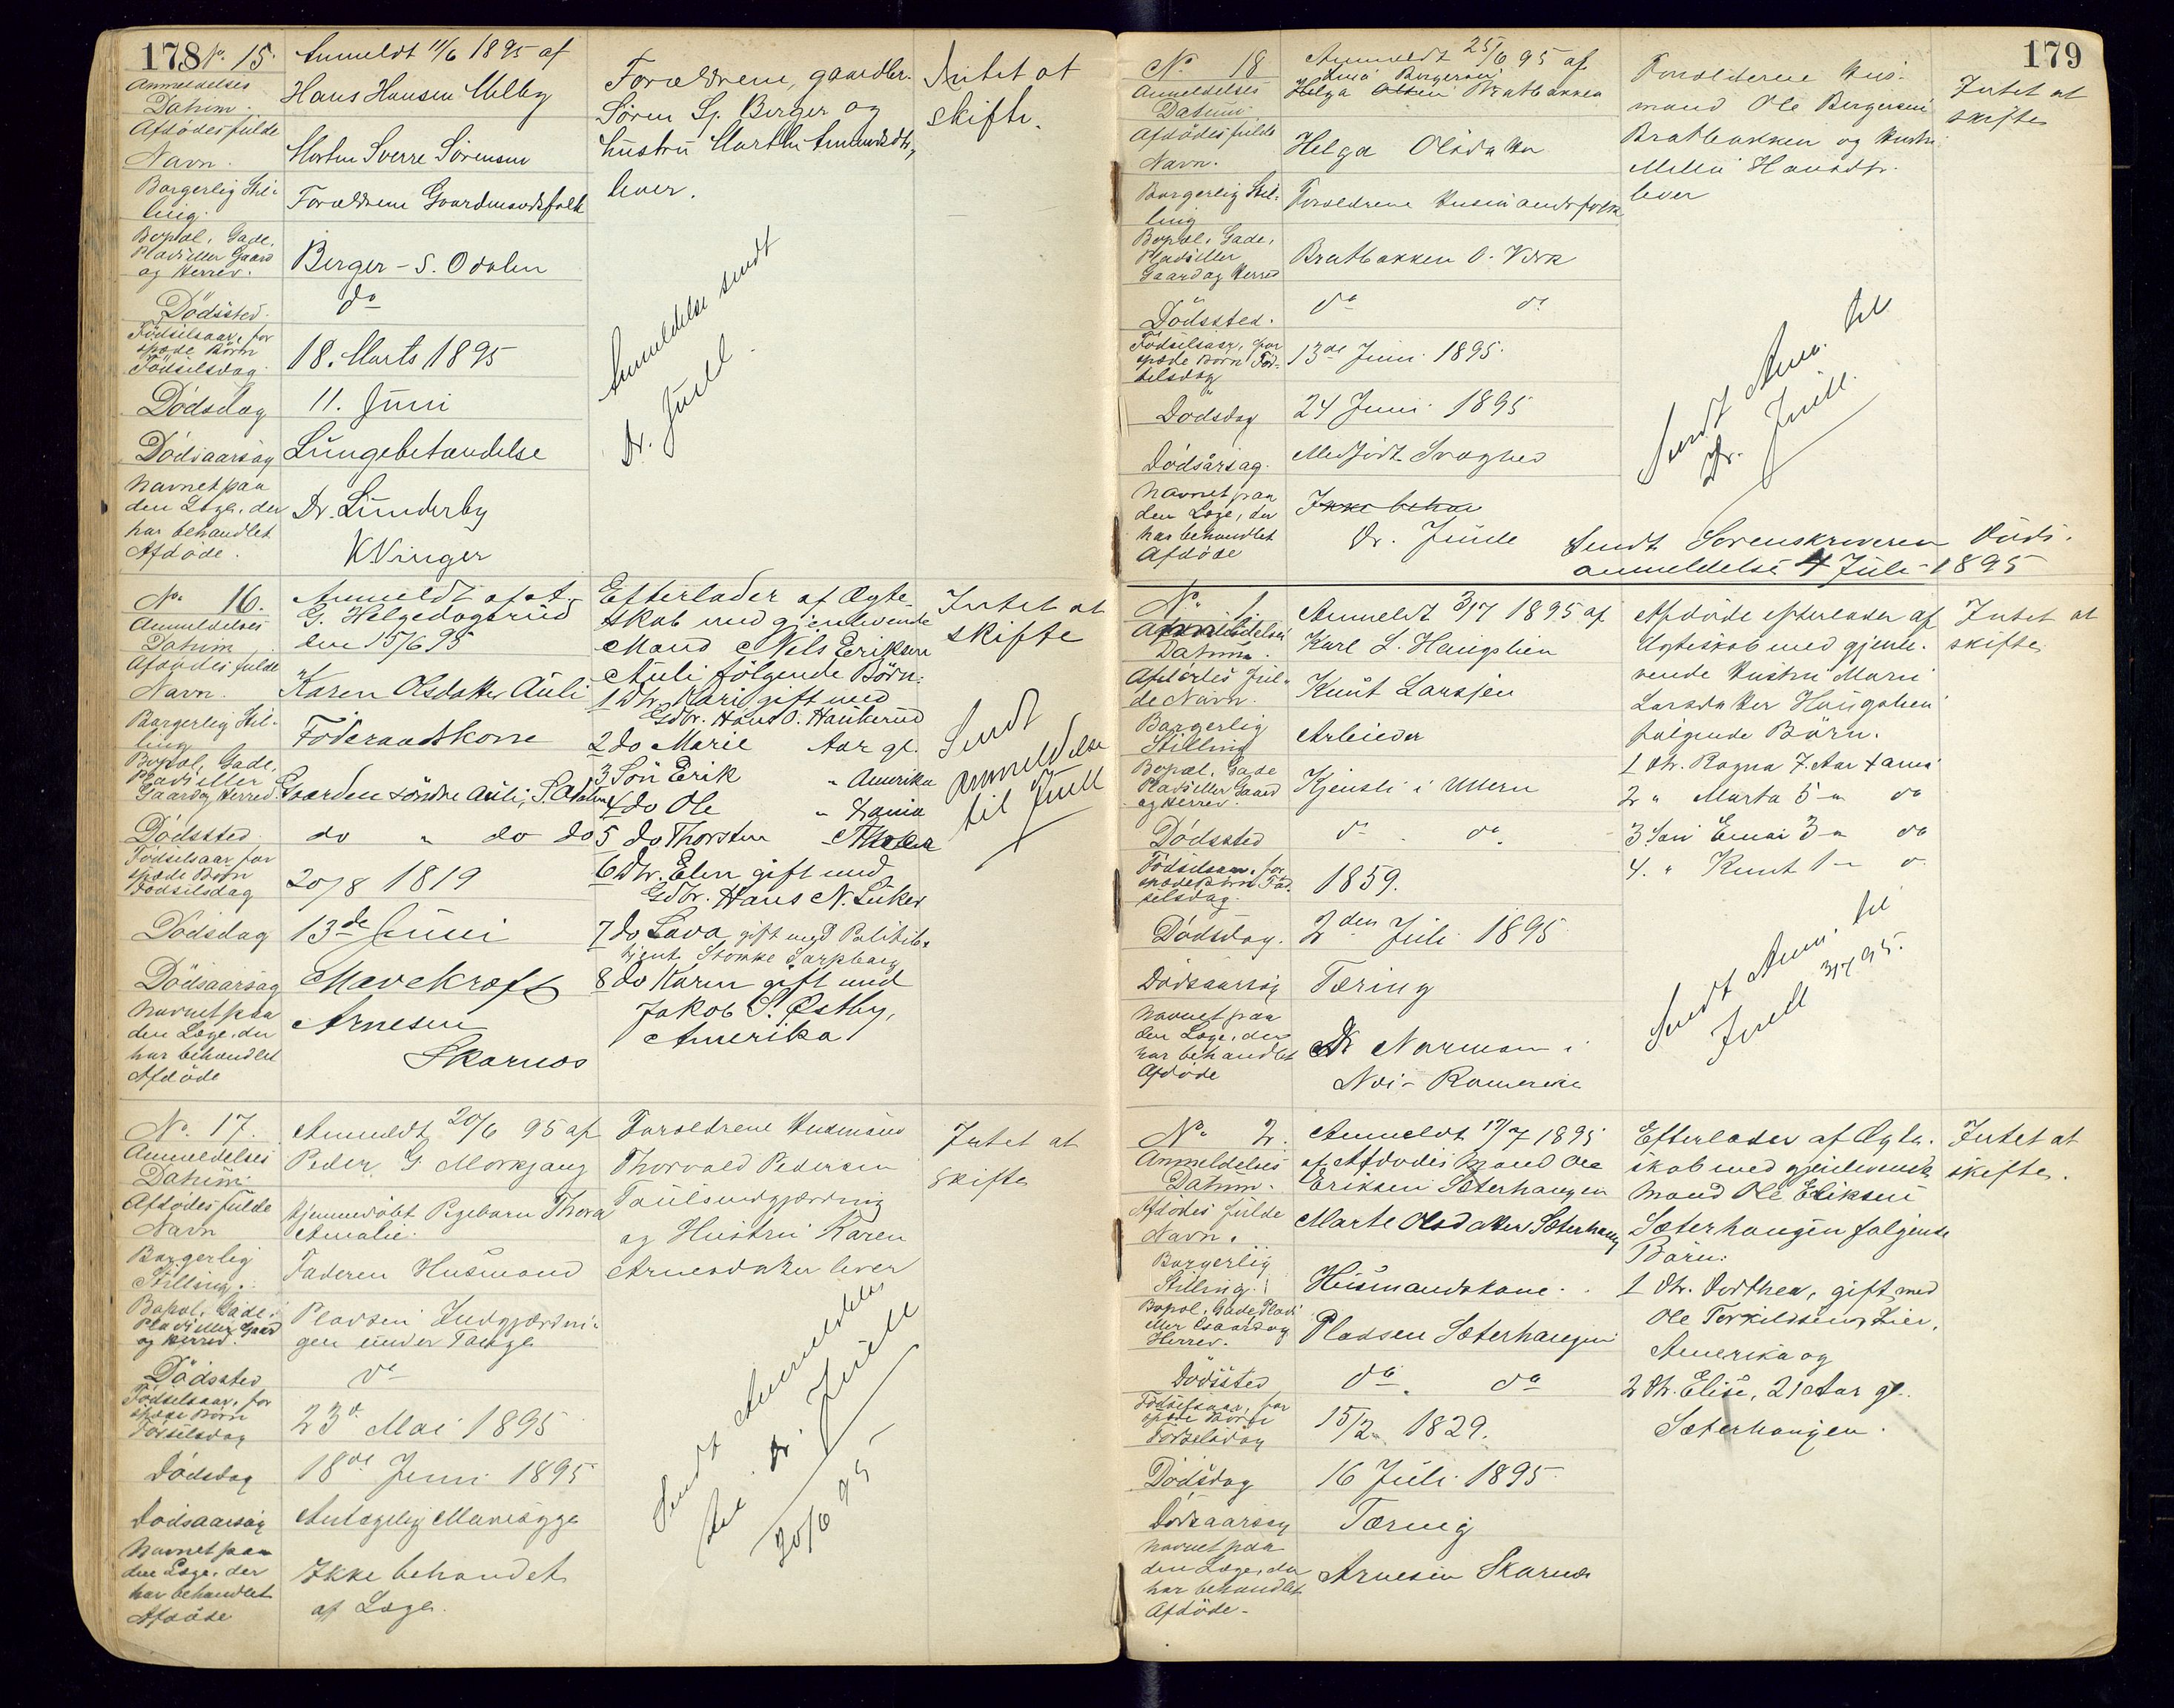 178
No. 15.
Anmeldelses
Datum.
Anmeldt 11/6 1895 af
Hans Hansen Melby
Afdødes fulde
Navn.
Morten Sverre Sørensen
Borgerlig Stil-
ling.
Forældrene Gaardmandsfolk
Bopæl, Gade,
Plads eller Gaard
og Herred.
Berger - S. Odalen
Dödssted.
do
Födselsaar, for
spæde Börn
Födselsdag.
18. Marts 1895
Dödsdag
11. Juni
Dödsaarsag
Lungebetændelse
Navnet paa
den Læge, der
har behandlet
Afdöde.
Dr. Lunderby
K Vinger
Forældrene, gaardbr.
Søren Berger og
hustru Marthe
lever.
Anmeldelse sendt
Dr. Juell.
Intet at
skifte.
No. 16.
Anmeldelses
Datum
Anmeldt af
G. Helgedagsrud
den 15/6 95
Afdödes fulde
Navn.
Karen Olsdatter Auli
Borgerlig Stil-
ling
Föderaadskone
Bopæl, Gade,
Plads eller
Gaard og Herred.
Gaarden söndre Auli, S. Odalen
Dödssted
do " do do
Födselsaar for
spæde Börn
Födselsdag
20/8 1819
Dödsdag
13de Juni
Dödsaarsag
Mavekræft
Navnet paa
den Læge, der
har behandlet
Afdöde
Arnesen
Skarnæs
Efterlader af Ægte-
skab med gjenlevende
Mand Nels Eriksen
Auli fölgende Börn:
1 Dtr. Kari gift med
Gdbr. Hans O. Haukerud
2 do Marie Aar gl.
3 Sön Erik " Amerika
4 do Ole "
5 do Thorsten
6 Dtr. Elen gift med
Gdbr. Hans N.
7 do Lava gift med Politibe-
tjent Sarpsborg
8 do Karen gift med
Jakob S. Østby,
Amerika
Intet at
skifte
Sendt
anmeldelse
til Juell
No. 17.
Anmeldelses
Datum:
Anmeldt 20/6 95 af
Peder G. Morkgang
Afdødes fulde
Navn
Hjemmedöbt Pigebarn Thora
Amalie.
Borgerlig
Stilling.
Faderen Husmand
Bopæl, Gade,
Plads eller Gaard
og Herred.
Pladsen Indgjærdin-
gen under
Dödssted
do
Födselsaar, for
spæde Börn
Födselsdag
23d Mai 1895
Dödsdag
18de Juni 1895
Dödsaarsag
Antagelig Mavesyge
Navnet paa
den Læge, der
har behandlet
Afdöde
Ikke behandlet
af Læge.
Forældrene Husmand
Thorvald Pedersen
og Hustru Karen
Arnesdatter lever
Sendt Anmeldelse
til Dr. Juell
20/6 95
Intet at
skifte
179
No. 18
Anmeldelses
Datum
Anmeldt 25/6 95 af
Bergersen
Helga Olsen Bratbakken
Afdödes fulde
Navn.
Helga Olsdatter
Borgerlig Stil-
ling
Forældrene Husmandsfolk
Bopæl, Gade,
Plads eller
Gaard og Herred
Bratbakken O. Værk
Dödssted.
do do
Födselsaar, for
spæde Börn Föd-
selsdag
13de Juni 1895.
Dödsdag
24 Juni 1895
Dödsårsag.
Medfödt Svaghed
Navnet paa
den Læge, der
har behandlet
Afdöde
Ikke behan
Dr. Juell
Forældrene Hus-
mand Ole Bergersen
Bratbakken og Hustru
Hansdtr.
lever
Sendt Anm. til
Dr. Juell.
Intet at
skifte
Sendt Sorenskriveren Döds-
anmeldelse 4 Juli 1895
No. 1.
Anmeldelses
Datum.
Anmeldt 3/7 1895 af
Karl L. Haugslien
Afdödes ful-
de Navn.
Knut Larsen
Borgerlig
Stilling
Arbeider
Bopæl, Gade
Plads eller Gaard
og Herred.
Kjensli i Ullern
Dödssted
do do.
Födselsaar, for
spæde Börn Föd-
selsdag.
1859.
Dödsdag.
2den Juli 1895
Dödsaarsag
Tæring
Navnet paa
den Læge, der
har behandlet
Afdöde
Dr Norman i
Næs Romerike
Afdöde efterlader af
Ægteskab med gjenle-
vende Hustru Maren
Larsdatter Haugslien
fölgende Börn.
1 Dtr. Ragna 7. Aar
2 " Marta 5 " do
3 Sön Einar 3 " do
4. " Knut 1 "
Sendt Anm. til
Juell 3/7 95.
Intet at
skifte
No. 2.
Anmeldelses
Datum.
Anmeldt 17/7 1895
af Afdödes Mand Ole
Eriksen Sæterhaugen
Afdödes fulde
Navn.
Marte Olsdatter Sæterhaug
Borgerlig
Stilling.
Husmandskone.
Bopæl, Gade, Plads
eller Gaard og
Herred.
Pladsen Sæterhaugen
Dödssted
do. do
Födselsaar, for
spæde Börn
Födselsdag
15/2 1829.
Dödsdag
16 Juli 1895.
Dödsaarsag
Tæring
Navnet paa
den Læge, der
har behandlet
Afdöde.
Arnesen Skarnæs
Efterlader af Ægte-
skab med gjenlevende
Mand Ole Eriksen
Sæterhaugen fölgende
Börn:
1 Dtr. Dorthea, gift med
Ole Terkildsen Lier,
Amerika og
2 Dtr. Elise, 21 Aar gl.
Sæterhaugen.
Intet at
skifte.